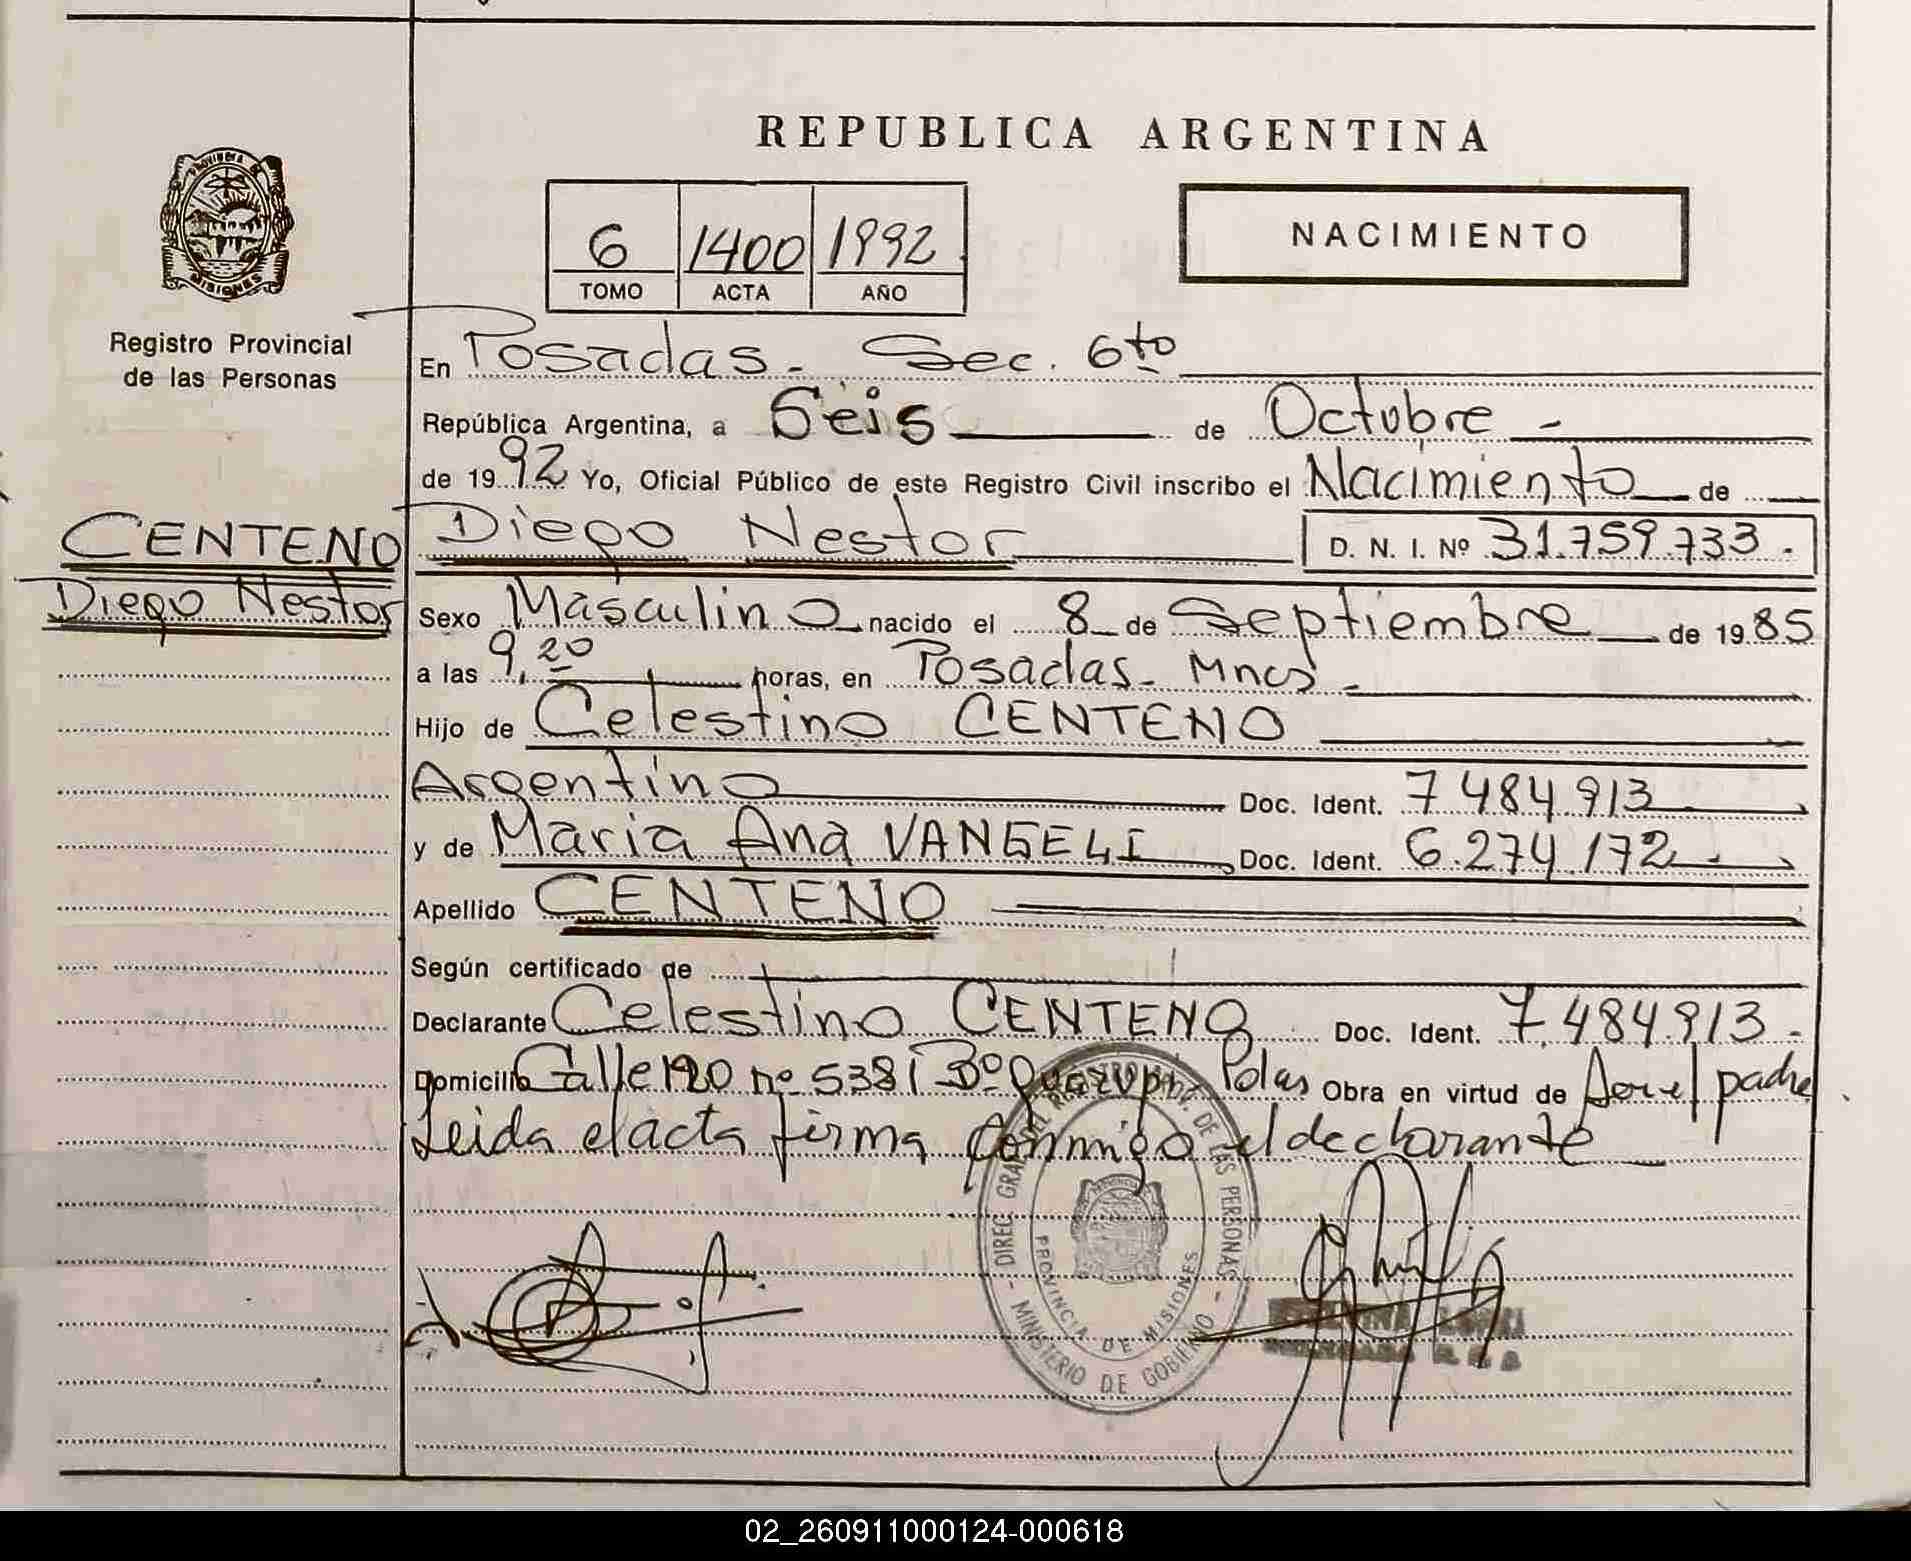 REPUBLICA ARGENTINA
PROVINCIA DE
MISIONES
Registro Provincial
de las Personas
6 1400 1992
TOMO ACTA AÑO
NACIMIENTO
En Posadas - Sec. 6to
República Argentina, a Seis de Octubre -
de 1992 Yo, Oficial Público de este Registro Civil inscribo el Nacimiento de
CENTENO
Diego Nestor
Diego Nestor D. N. I. Nº 31.759.733.
Sexo Masculino nacido el 8 de Septiembre de 1985
a las 9,20 horas, en Posadas - Mnes -
Hijo de Celestino CENTENO
Argentino Doc. Ident. 7 484.913
y de Maria Ana VANGELI Doc. Ident. 6.274.172
Apellido CENTENO
Según certificado de
Declarante Celestino CENTENO Doc. Ident. 7.484.913-
Domicilio Calle 120 nº 5381 Bº Pdas Obra en virtud de Ser el padre
Leida el acta firma conmigo el declarante
DIREC. GRAL. DEL REG. PROV. DE LAS PERSONAS
MINISTERIO DE GOBIERNO
PROVINCIA DE MISIONES
02_260911000124-000618